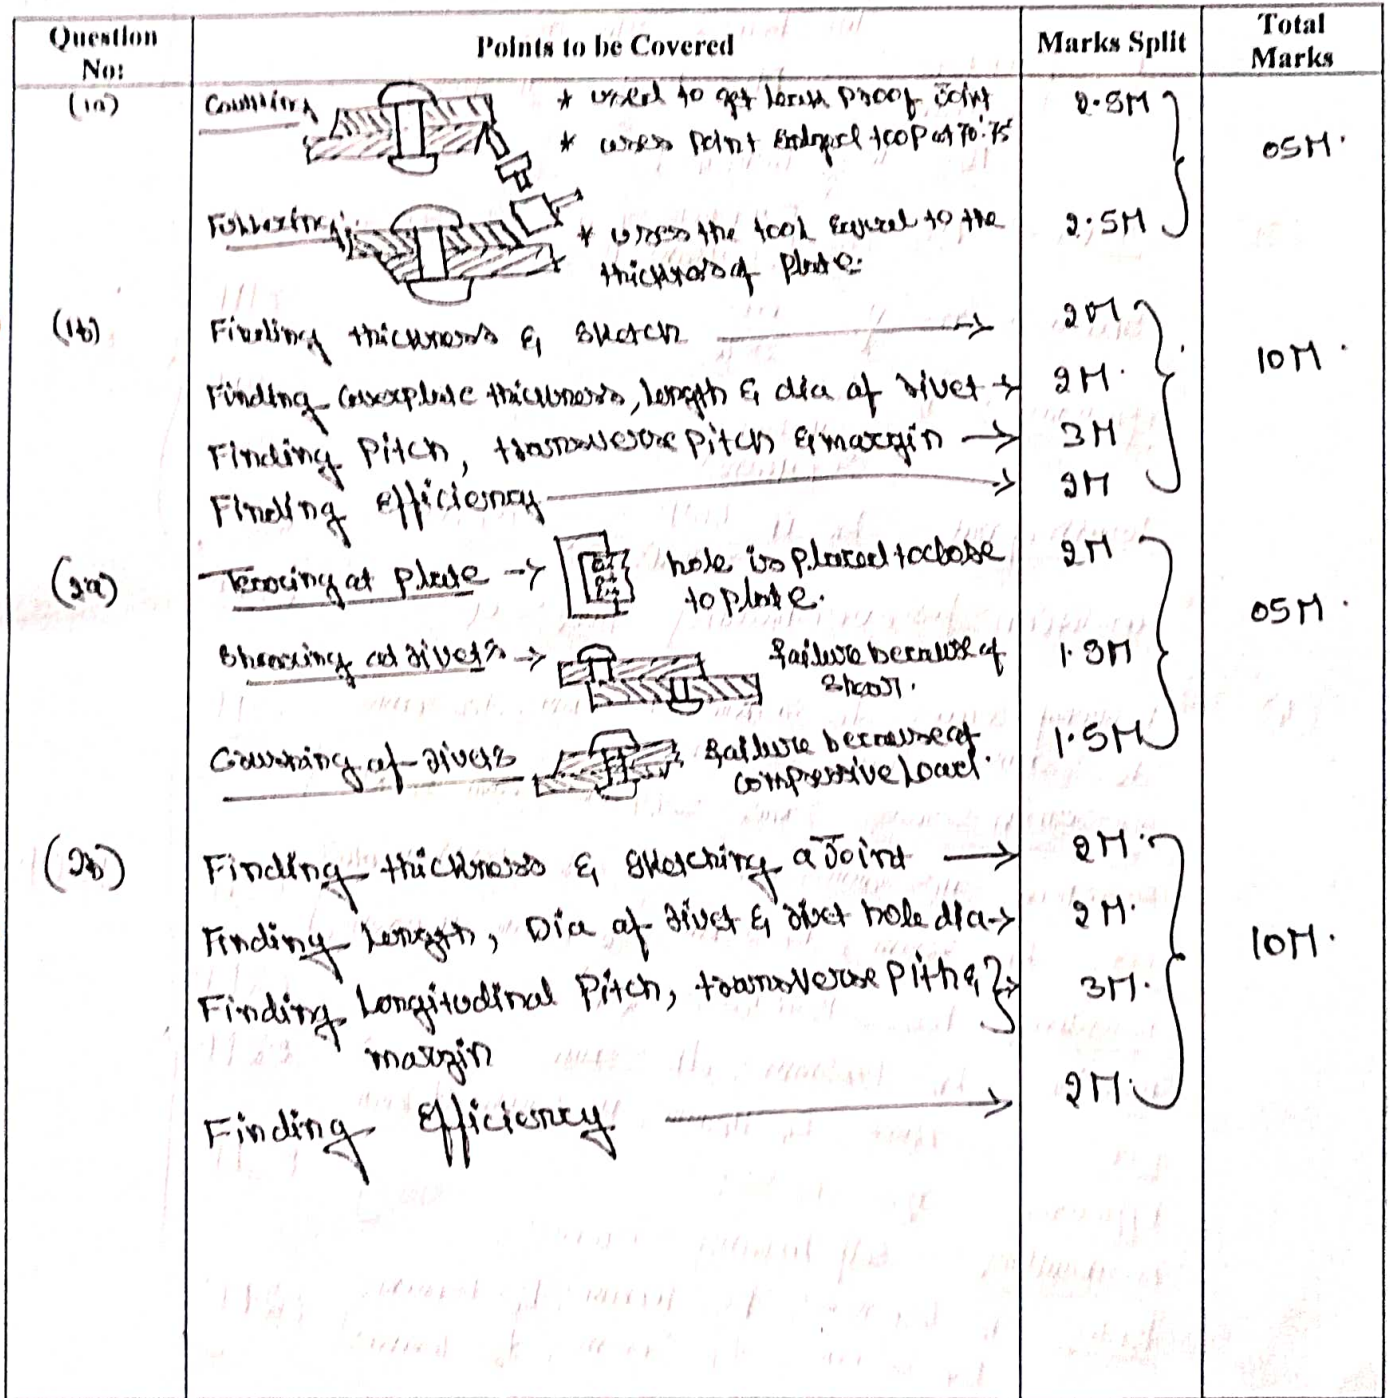 Question No:
Points to be Covered
Marks Split
Total Marks
(1a)
Caulking
* used to get leak proof Joint
2.5M
05M.
* uses point tool at 70°-75°
Fullering:
* uses the tool equal to the
2.5M
thickness of plate.
(1b)
Finding thickness & sketch
2M
10M.
Finding coverplate thickness, length & dia of rivet →
2M.
Finding Pitch, transverse pitch & margin →
3M
Finding efficiency →
2M
(2a)
Tearing at plate →
hole is placed to close
2M
05M.
to plate.
Shearing at rivets →
failure because of
1.5M
shear.
Crushing of rivets
failure because of
1.5M
compressive load.
(2b)
Finding thickness & sketching a Joint →
2M.
Finding length, Dia of rivet & rivet hole dia →
2M.
10M.
Finding longitudinal Pitch, transverse pith &
3M.
margin
Finding Efficiency. →
2M.